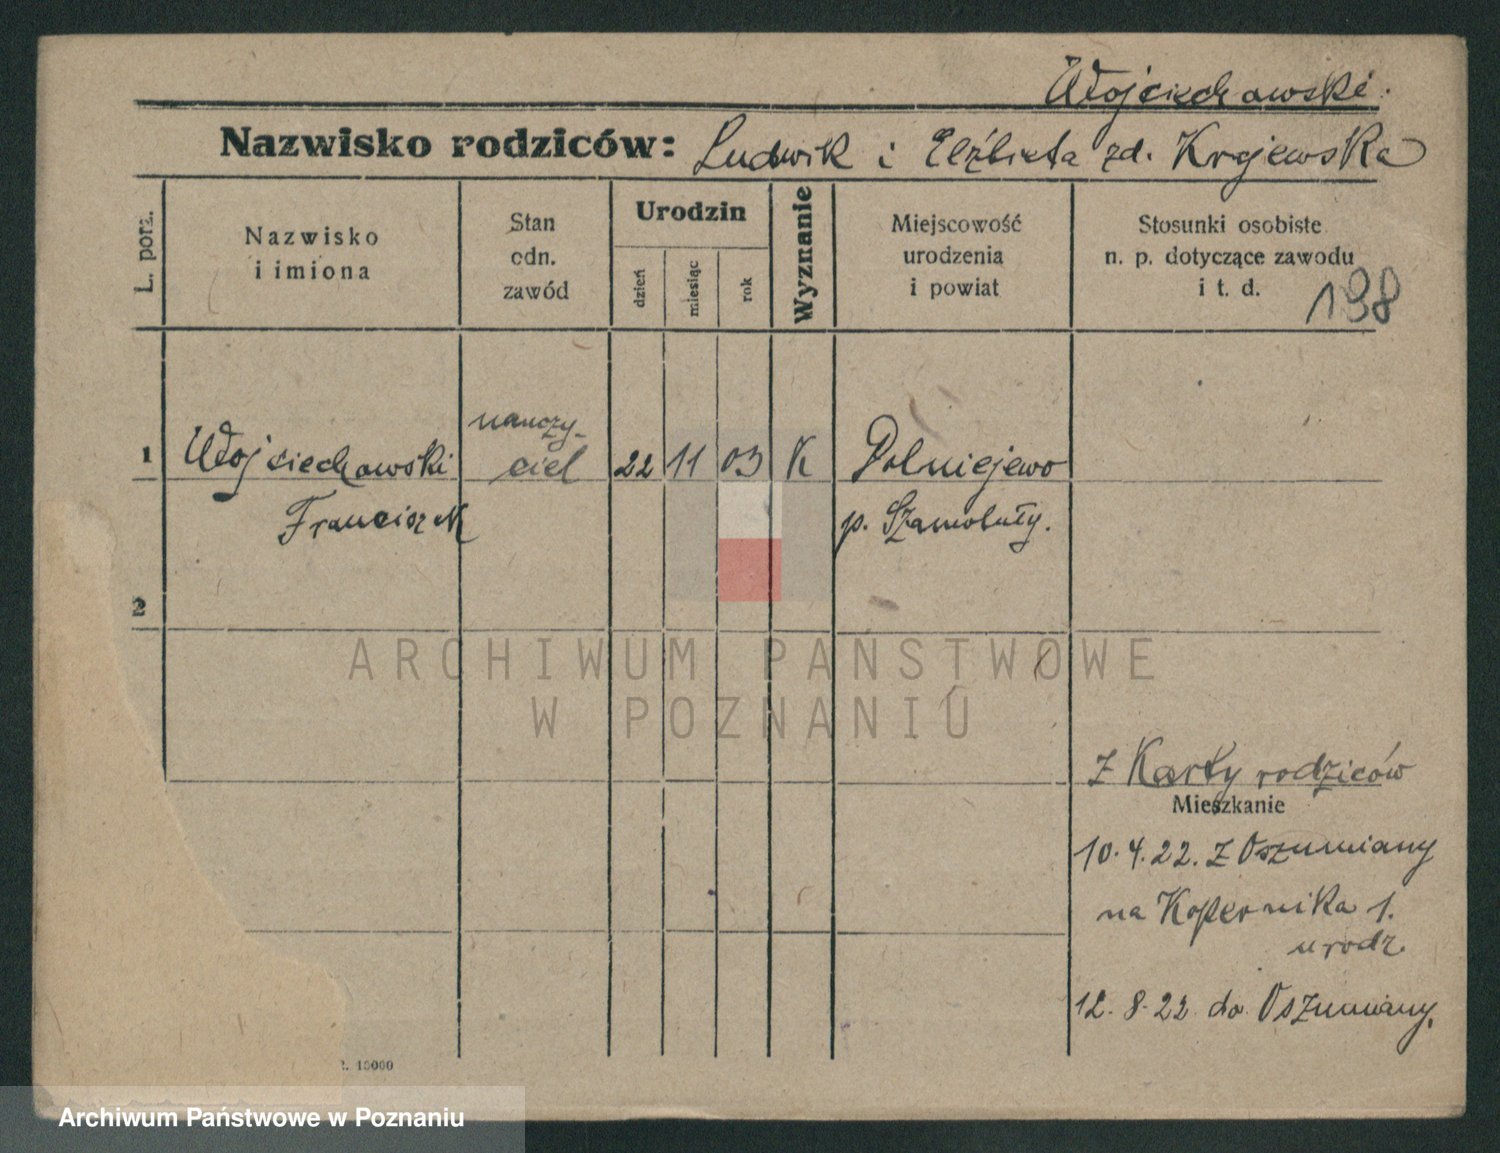 Wojciechowski.
Nazwisko rodziców: Ludwik i Elżbieta zd. Krajewska
L. porz.
Nazwisko
i imiona
Stan
odn.
zawód
Urodzin
dzień
miesiąc
rok
Wyznanie
Miejscowość
urodzenia
i powiat
Stosunki osobiste
n. p. dotyczące zawodu
i t. d.
198
nauczy-
1 Wojciechowski ciel 22 11 03 K Polniejewo
Franciszek p. Szamotuły.
2
ARCHIWUM PAŃSTWOWE
W POZNANIU
z Karty rodziców
Mieszkanie
10.4.22. z Oszmiany
na Kopernika 1.
urodz.
12.8.22 do Oszmiany.
10000
Archiwum Państwowe w Poznaniu